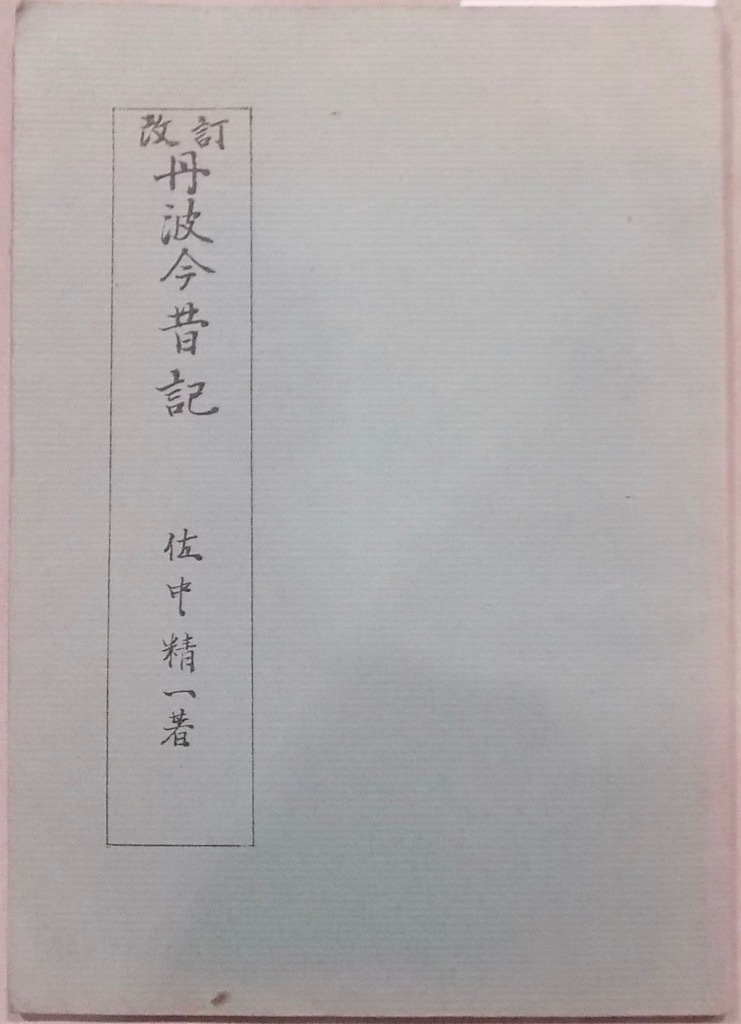 改訂
丹波今昔記
佐中精一著